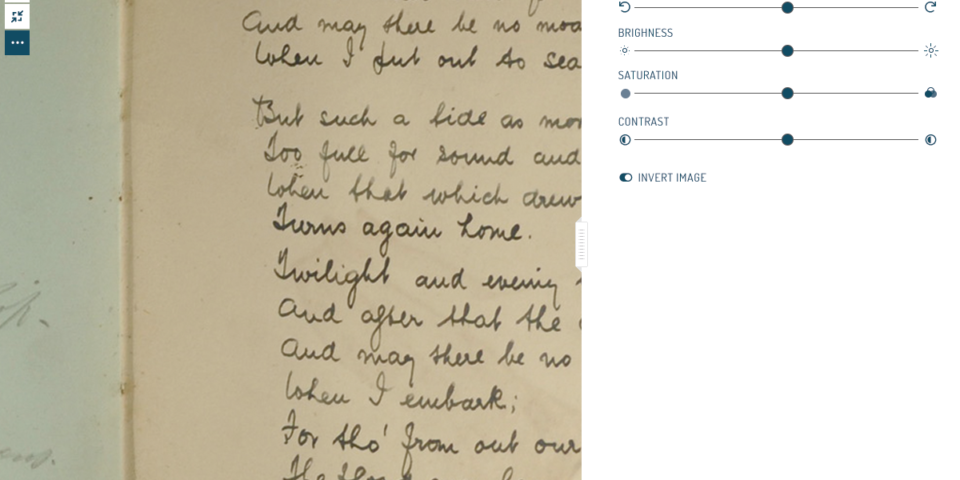 And may there be no moa
When I put out to sea
But such a tide as mo
Too full for sound and
When that which drew
Turns again home.
Twilight and evening
And after that the
And may there be no
When I embark;
For tho' from out our
BRIGHNESS
SATURATION
CONTRAST
INVERT IMAGE